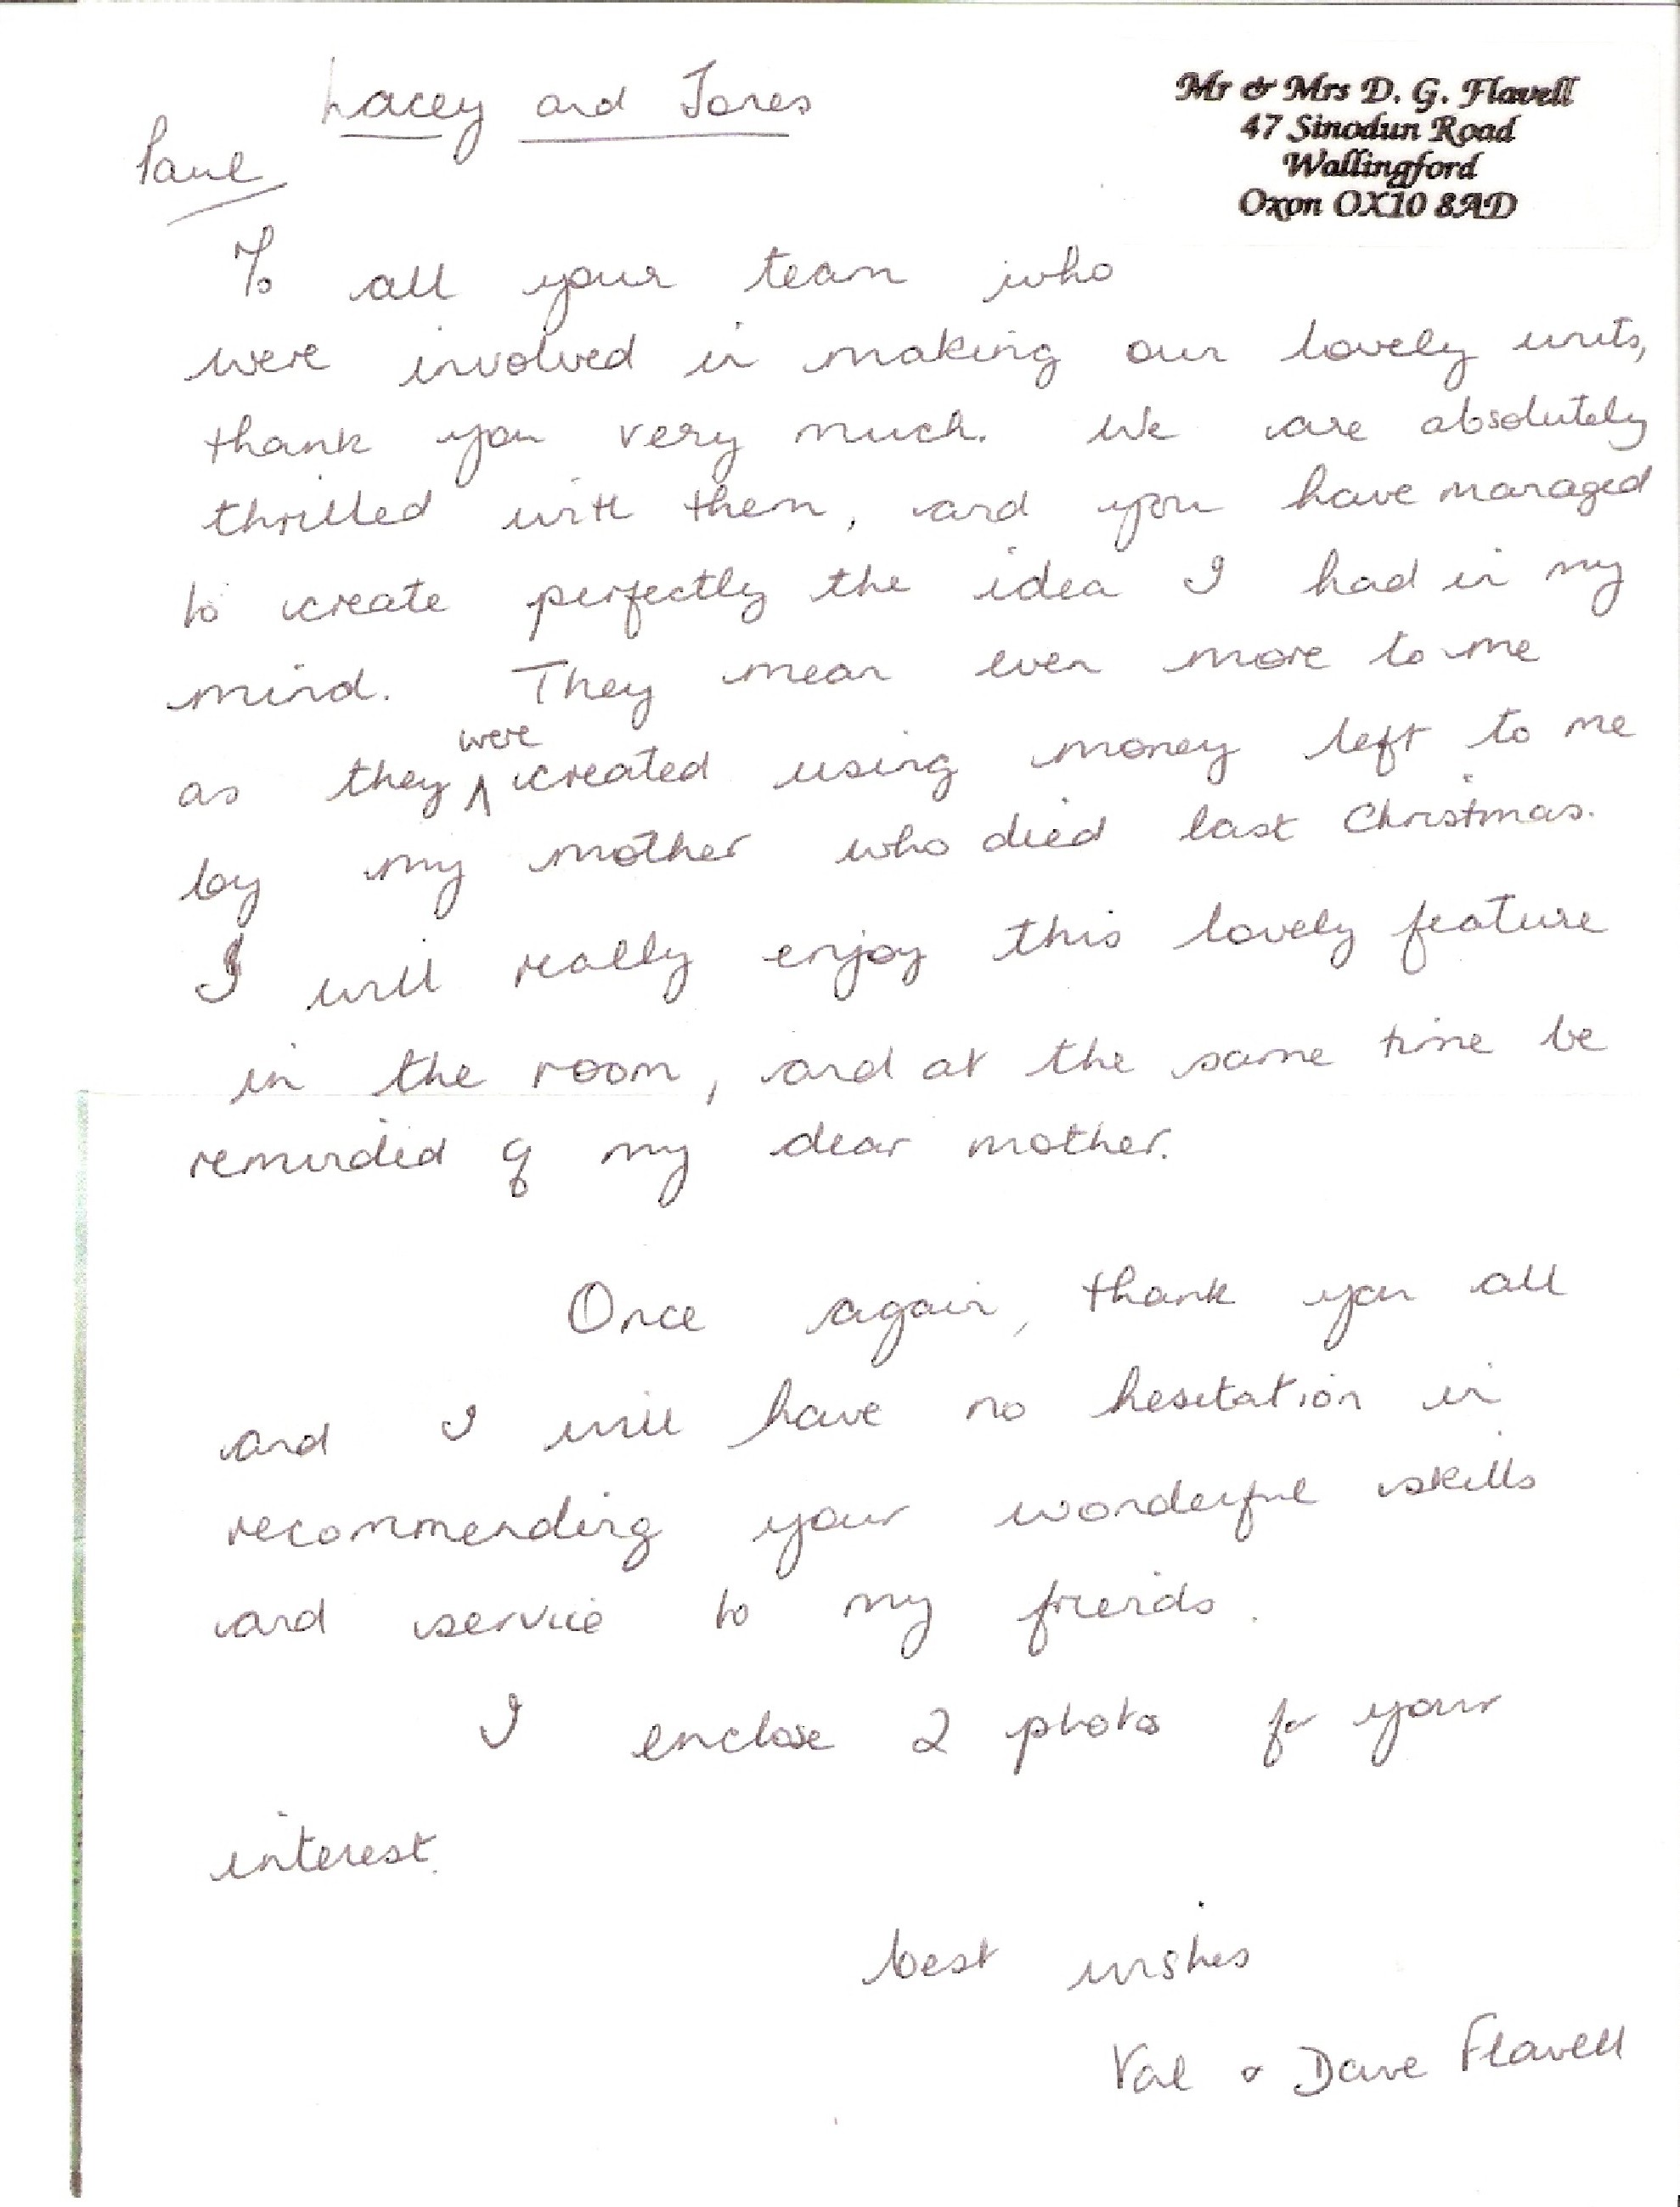 Lacey and Jones
Mr & Mrs D. G. Flavell
47 Sinodun Road
Wallingford
Oxon OX10 8AD
Paul
To all your team who
were involved in making our lovely units,
thank you very much. We are absolutely
thrilled with them, and you have managed
to create perfectly the idea I had in my
mind. They mean even more to me
as they were created using money left to me
by my mother who died last Christmas.
I will really enjoy this lovely feature
in the room, and at the same time be
reminded of my dear mother.
Once again, thank you all
and I will have no hesitation in
recommending your wonderful skills
and service to my friends.
I enclose 2 photos for your
interest.
best wishes
Val & Dave Flavell